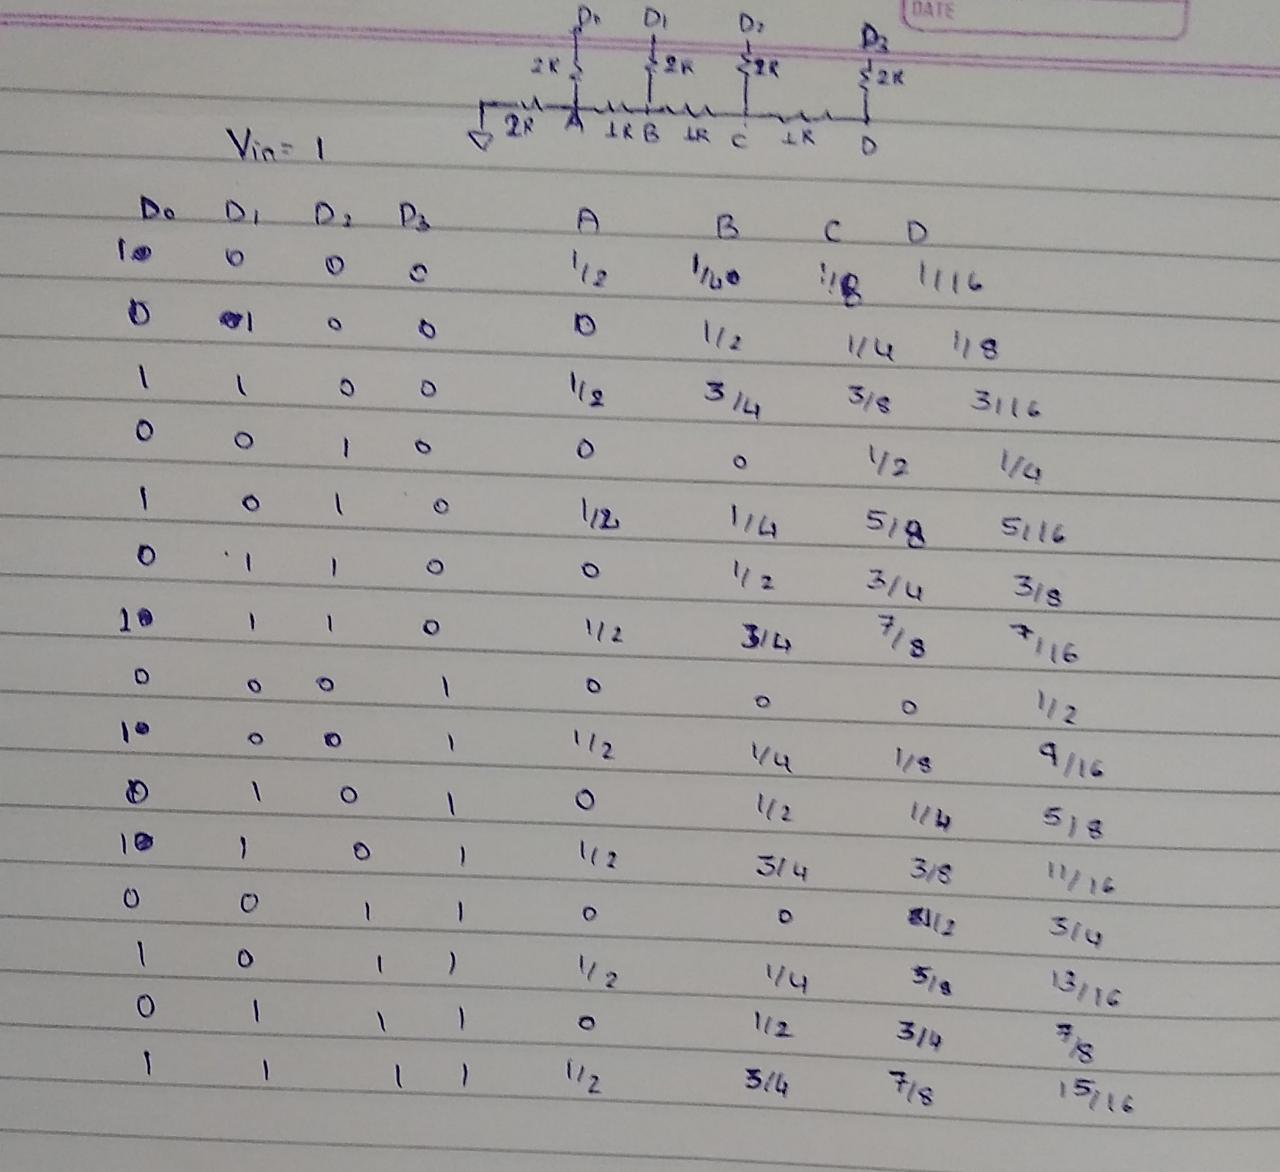 DATE
D₀ D₁ D₂ D₃
2R 2R 2R 2R
2R A 1R B 1R C 1R D
Vin = 1
D₀ D₁ D₂ D₃ A B C D
1 0 0 0 1/2 1/4 1/8 1/16
0 1 0 0 0 1/2 1/4 1/8
1 1 0 0 1/2 3/4 3/8 3/16
0 0 1 0 0 0 1/2 1/4
1 0 1 0 1/2 1/4 5/8 5/16
0 1 1 0 0 1/2 3/4 3/8
1 1 1 0 1/2 3/4 7/8 7/16
0 0 0 1 0 0 0 1/2
1 0 0 1 1/2 1/4 1/8 9/16
0 1 0 1 0 1/2 1/4 5/8
1 1 0 1 1/2 3/4 3/8 11/16
0 0 1 1 0 0 1/2 3/4
1 0 1 1 1/2 1/4 5/8 13/16
0 1 1 1 0 1/2 3/4 7/8
1 1 1 1 1/2 3/4 7/8 15/16